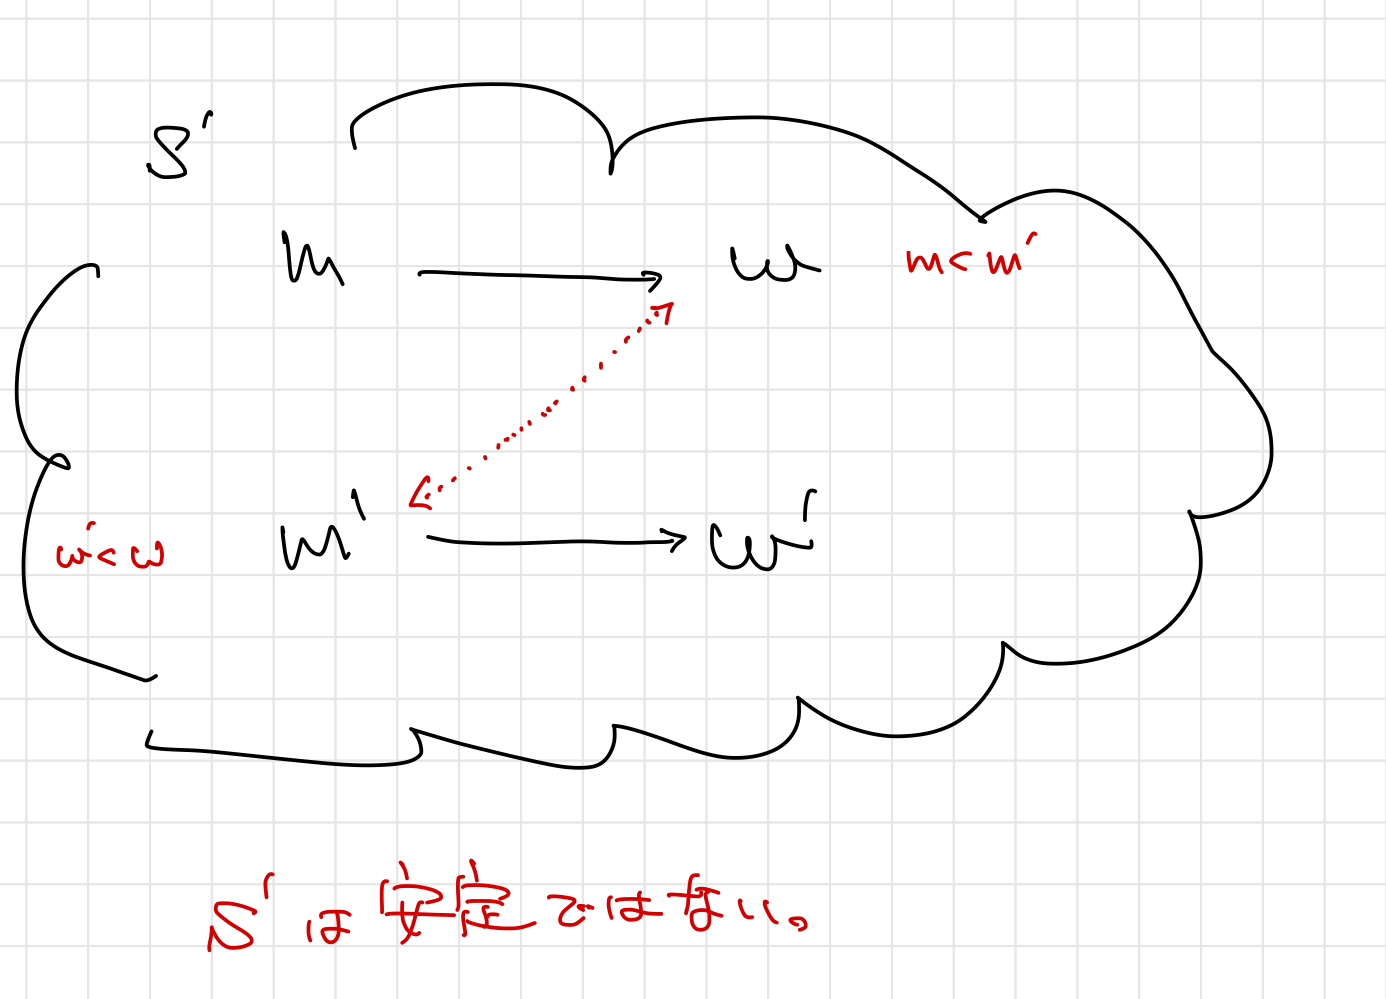 S'
m → w m < m'
w' < w m' → w'
S'は安定ではない。